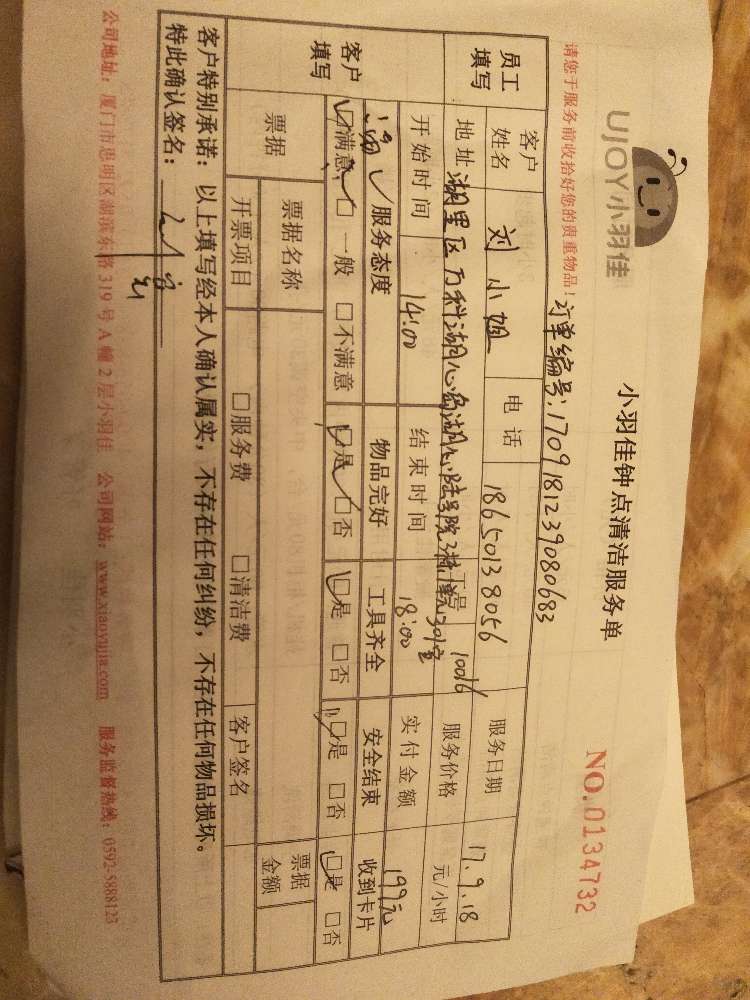 UJOY小羽佳
小羽佳钟点清洁服务单
NO.0134732
请您于服务前收拾好您的贵重物品!
订单编号:1709181239080683
员工填写
客户姓名 刘小姐 电话 18650138056 服务日期 17.9.18
地址 湖里区万科湖心岛湖心 301室 工号 10016 服务价格 元/小时
开始时间 14:00 结束时间 18:00 实付金额 199元
客户填写
服务态度 物品完好 工具齐全 安全结束 收到卡片
☑满意 □一般 □不满意 ☑是 □否 ☑是 □否 ☑是 □否 ☑是 □否
票据 票据名称 票据金额
开票项目 □服务费 □清洁费 客户签名
客户特别承诺: 以上填写经本人确认属实,不存在任何纠纷,不存在任何物品损坏。
特此确认签名:
公司地址:厦门市思明区湖滨东路319号A幢2层小羽佳 公司网站:www.xiaoyujia.com 服务监督热线:0592-5888123